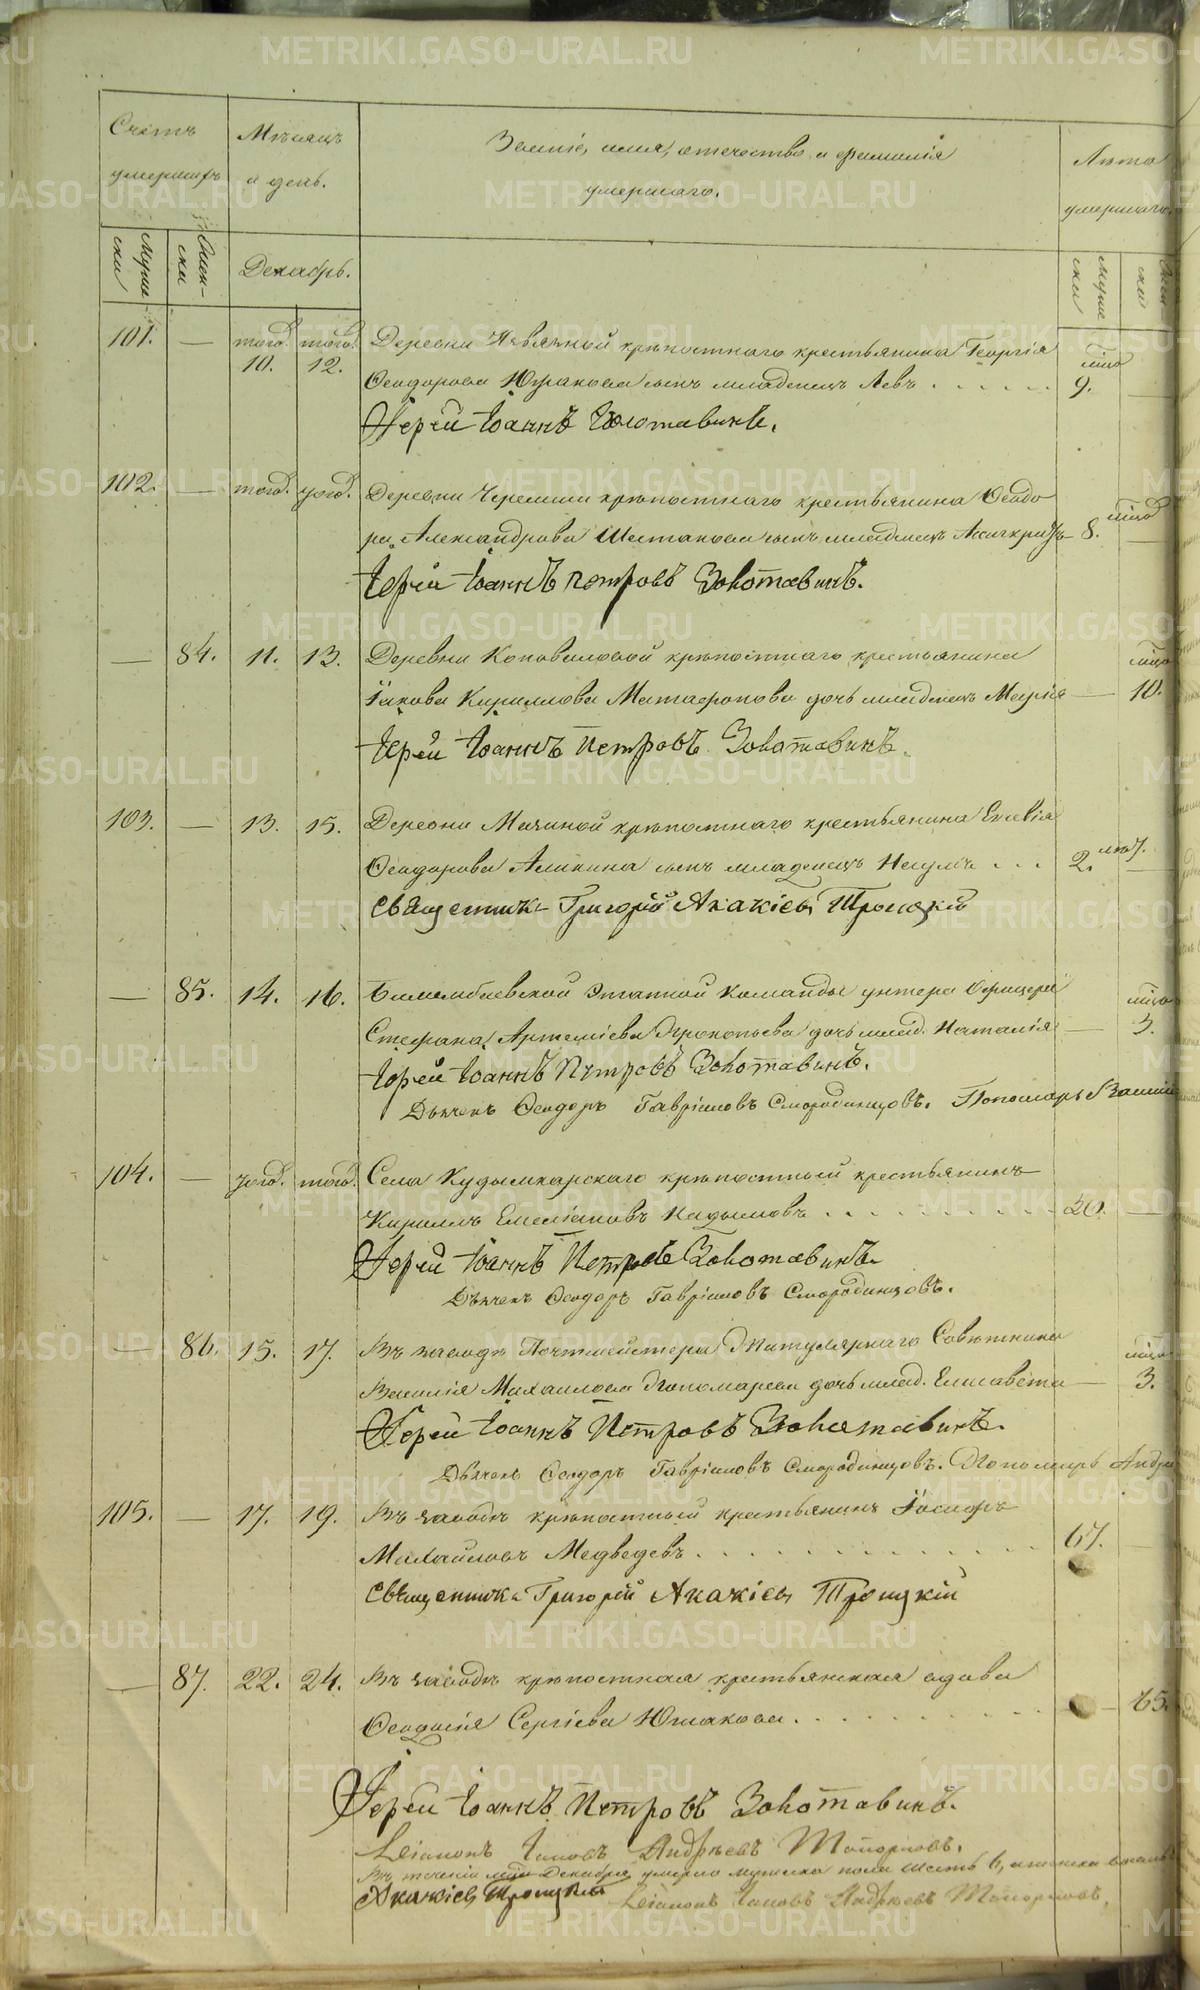 Счетъ умершихъ
Мѣсяцъ и день.
Званіе, имя, отечество и фамилія умершаго.
Лѣта умершаго
Муже ски
Жен- ски
Декабрь.
Муже ски
101. — того. 10. того. 12. Деревни крѣпостнаго крестьянина Георгія
Ѳеодорова сынъ младенецъ Левъ . . . . . мѣся 9.
Іерей Іоаннъ Золотавинъ.
102. — Деревни Черемши крѣпостнаго крестьянина Ѳеодо
ра Александрова Шестакова сынъ младенецъ 8. мѣсяц
Іерей Іоаннъ Петровъ Золотавинъ.
— 84. 11. 13. Деревни Коноваловой крѣпостнаго крестьянина
Іакова Кириллова Матафонова дочь младенецъ Марія — мѣся 10.
Іерей Іоаннъ Петровъ Золотавинъ.
103. — 13. 15. Деревни крѣпостнаго крестьянина
Ѳеодорова сынъ младенецъ Наумъ . . . 2. мѣся.
Священникъ Григорій Акакіевъ Троицкій
— 85. 14. 16. Билимбаевской Этапной Команды унтеръ Офицера
Стефана Артеміева Прокопьева дочь млад. Наталія — мѣся 3.
Іерей Іоаннъ Петровъ Золотавинъ.
Дьячекъ Ѳеодоръ Гавріиловъ Смородинцовъ. Пономарь
104. — того. Села Кудымкарскаго крѣпостный крестьянинъ
Кириллъ Емеліановъ . . . . . . . . . .
Іерей Іоаннъ Петровъ Золотавинъ.
Дьячекъ Ѳеодоръ Гавріиловъ Смородинцовъ.
— 86. 15. 17. Въ заводѣ Почтмейстера Титулярнаго Совѣтника
Василія Михаилова Пономарева дочь млад. Елисавета — мѣся 3.
Іерей Іоаннъ Петровъ Золотавинъ.
Дьячекъ Ѳеодоръ Гавріиловъ Смородинцовъ. Пономарь Андре
105. — 17. 19. Въ заводѣ крѣпостный крестьянинъ Іосифъ
Михайловъ Медведевъ . . . . . . . . . . . . 67.
Священникъ Григорій Акакіевъ Троицкій
— 87. 22. 24. Въ заводѣ крѣпостная крестьянская вдова
Ѳеодосія Сергіева Юшакова . . . . . . . . . . — 65.
Іерей Іоаннъ Петровъ Золотавинъ.
Діаконъ Іаковъ Андреевъ Топорковъ.
Въ теченіи Декабря умерло мужеска пола шесть 6, а женска
Акакіевъ Троицкій Діаконъ Іаковъ Андреевъ Топорковъ.
METRIKI.GASO-URAL.RU